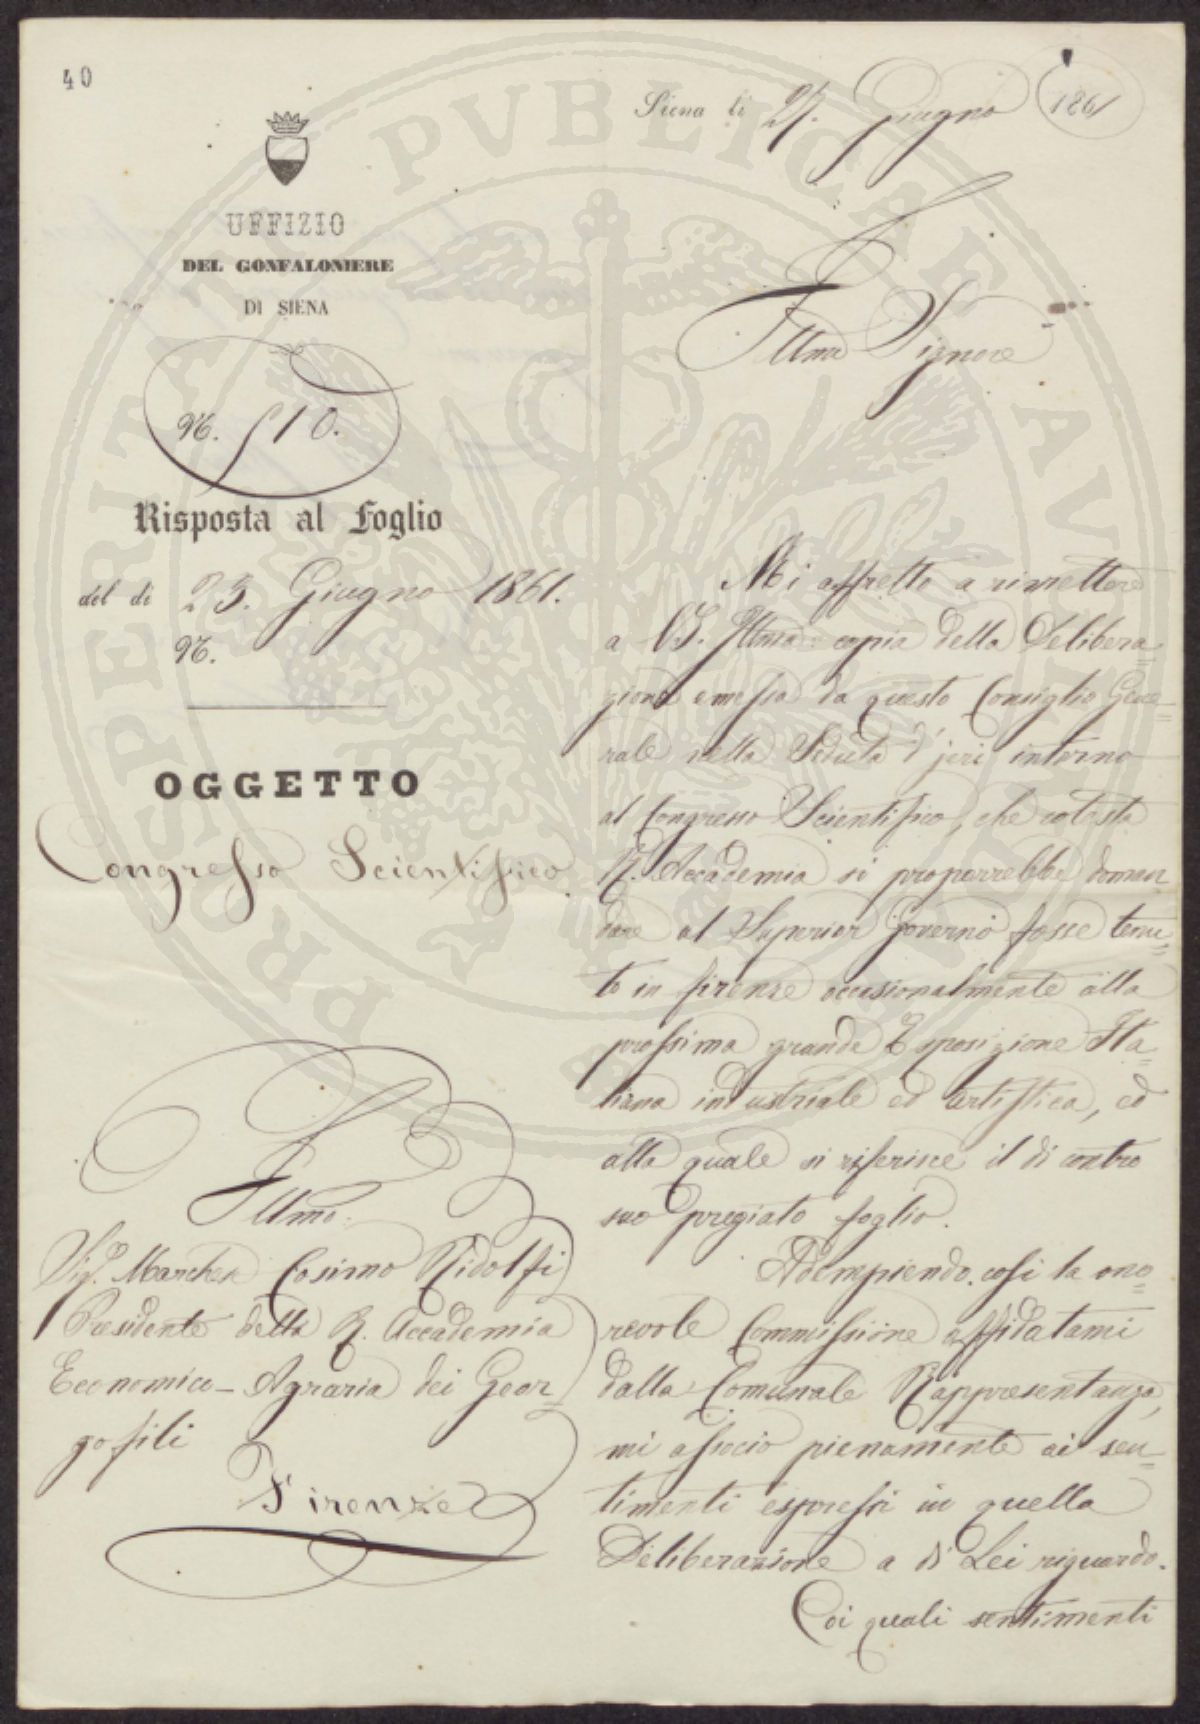 40
Siena li 27. Giugno 1861
UFFIZIO
DEL GONFALONIERE
DI SIENA
N. 510.
Risposta al Foglio
del dì 23. Giugno 1861.
N.
OGGETTO
Congresso Scientifico.
Illmo
Sigr. Marchese Cosimo Ridolfi
Presidente della R. Accademia
Economico-Agraria dei Geor-
gofili
Firenze
Illmo Signore
Mi affretto a rimettere
a VS. Illma copia della Delibera=
zione emessa da questo Consiglio Gene=
rale nella Seduta d'jeri intorno
al Congresso Scientifico, che cotesta
R. Accademia si proporrebbe doman
dare al Superior Governo fosse tenu=
to in firenze occasionalmente alla
prossima grande Esposizione Ita=
liana industriale ed artistica, ed
alla quale si riferisce il di contro
suo pregiato foglio.
Adempiendo così la ono=
revole Commissione affidatami
dalla Comunale Rappresentanza,
mi associo pienamente ai sen=
timenti espressi in quella
Deliberazione a di Lei riguardo.
Coi quali sentimenti
PROSPERITATI PVBLICAE AVGENDAE